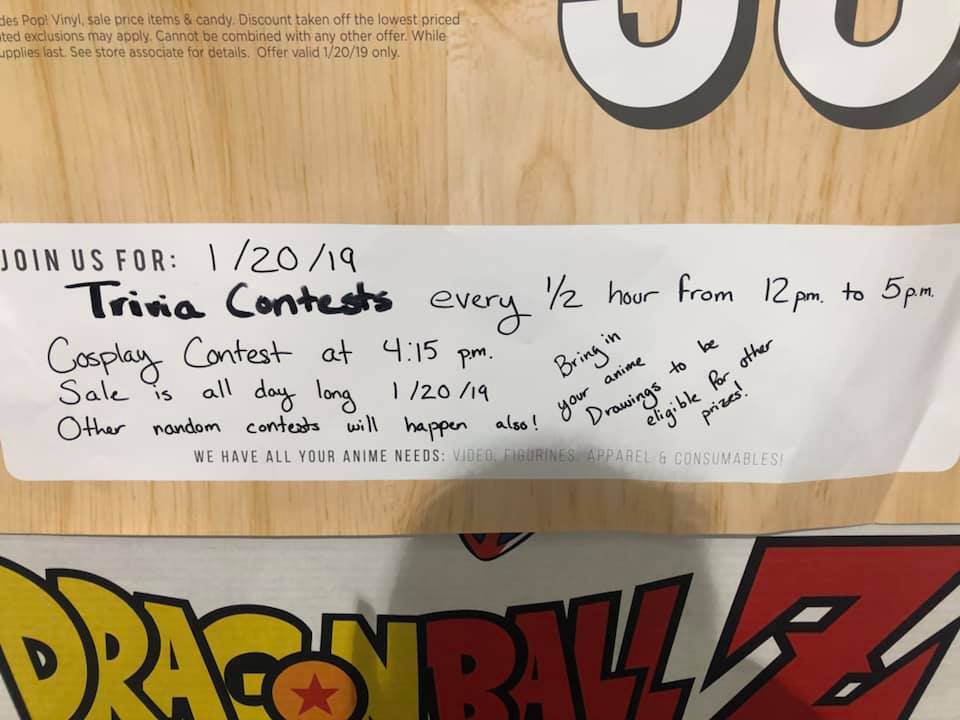 des Pop! Vinyl, sale price items & candy. Discount taken off the lowest priced
ted exclusions may apply. Cannot be combined with any other offer. While
upplies last. See store associate for details. Offer valid 1/20/19 only.
JOIN US FOR: 1/20/19
Trivia Contests every 1/2 hour from 12 pm. to 5 p.m.
Cosplay Contest at 4:15 pm.
Sale is all day long 1/20/19
Other random contests will happen also!
Bring in
your anime
Drawings to be
eligible for other
prizes!
WE HAVE ALL YOUR ANIME NEEDS: VIDEO, FIGURINES, APPAREL & CONSUMABLES!
DRAGON BALL Z